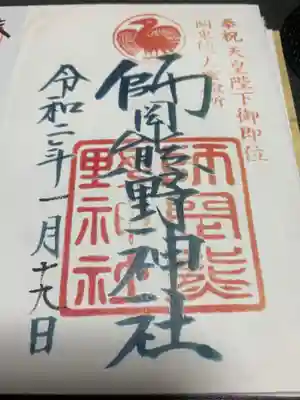 奉祝天皇陛下御即位
師岡熊野神社
師岡熊
野神社
令和二年一月十九日